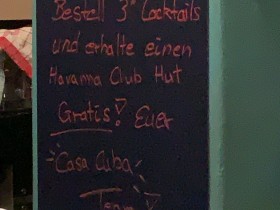 Bestell 3* Cocktails
und erhalte einen
Havanna Club Hut
Gratis! Euer
Casa Cuba
Team